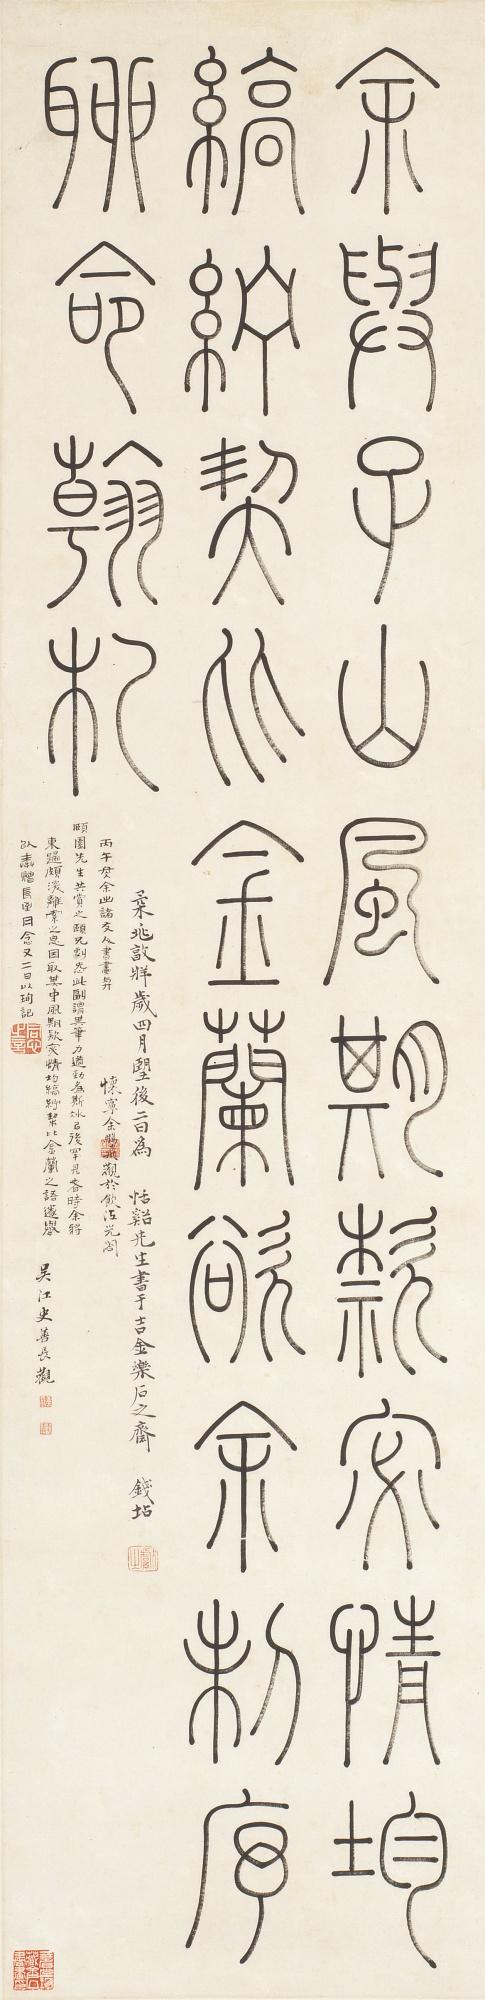 余與子山風期款宓情均
縞紵契比金蘭欲余制序
聊命翰札
柔兆敦牂歲四月望後二日為 恬谿先生書于吉金樂石之齋 錢坫
懷寧余鵬翀觀於飲江光閣
丙午余出諸友人書畫與
頤園先生共賞之頤兄劇此副謂其筆力遒勁為斯冰已後罕見者時余將
東歸頗深離索之思因取其中風期款情均縞紵契比金蘭之語遂舉
以奉贈長至日念又二日以珣記
吳江史善長觀